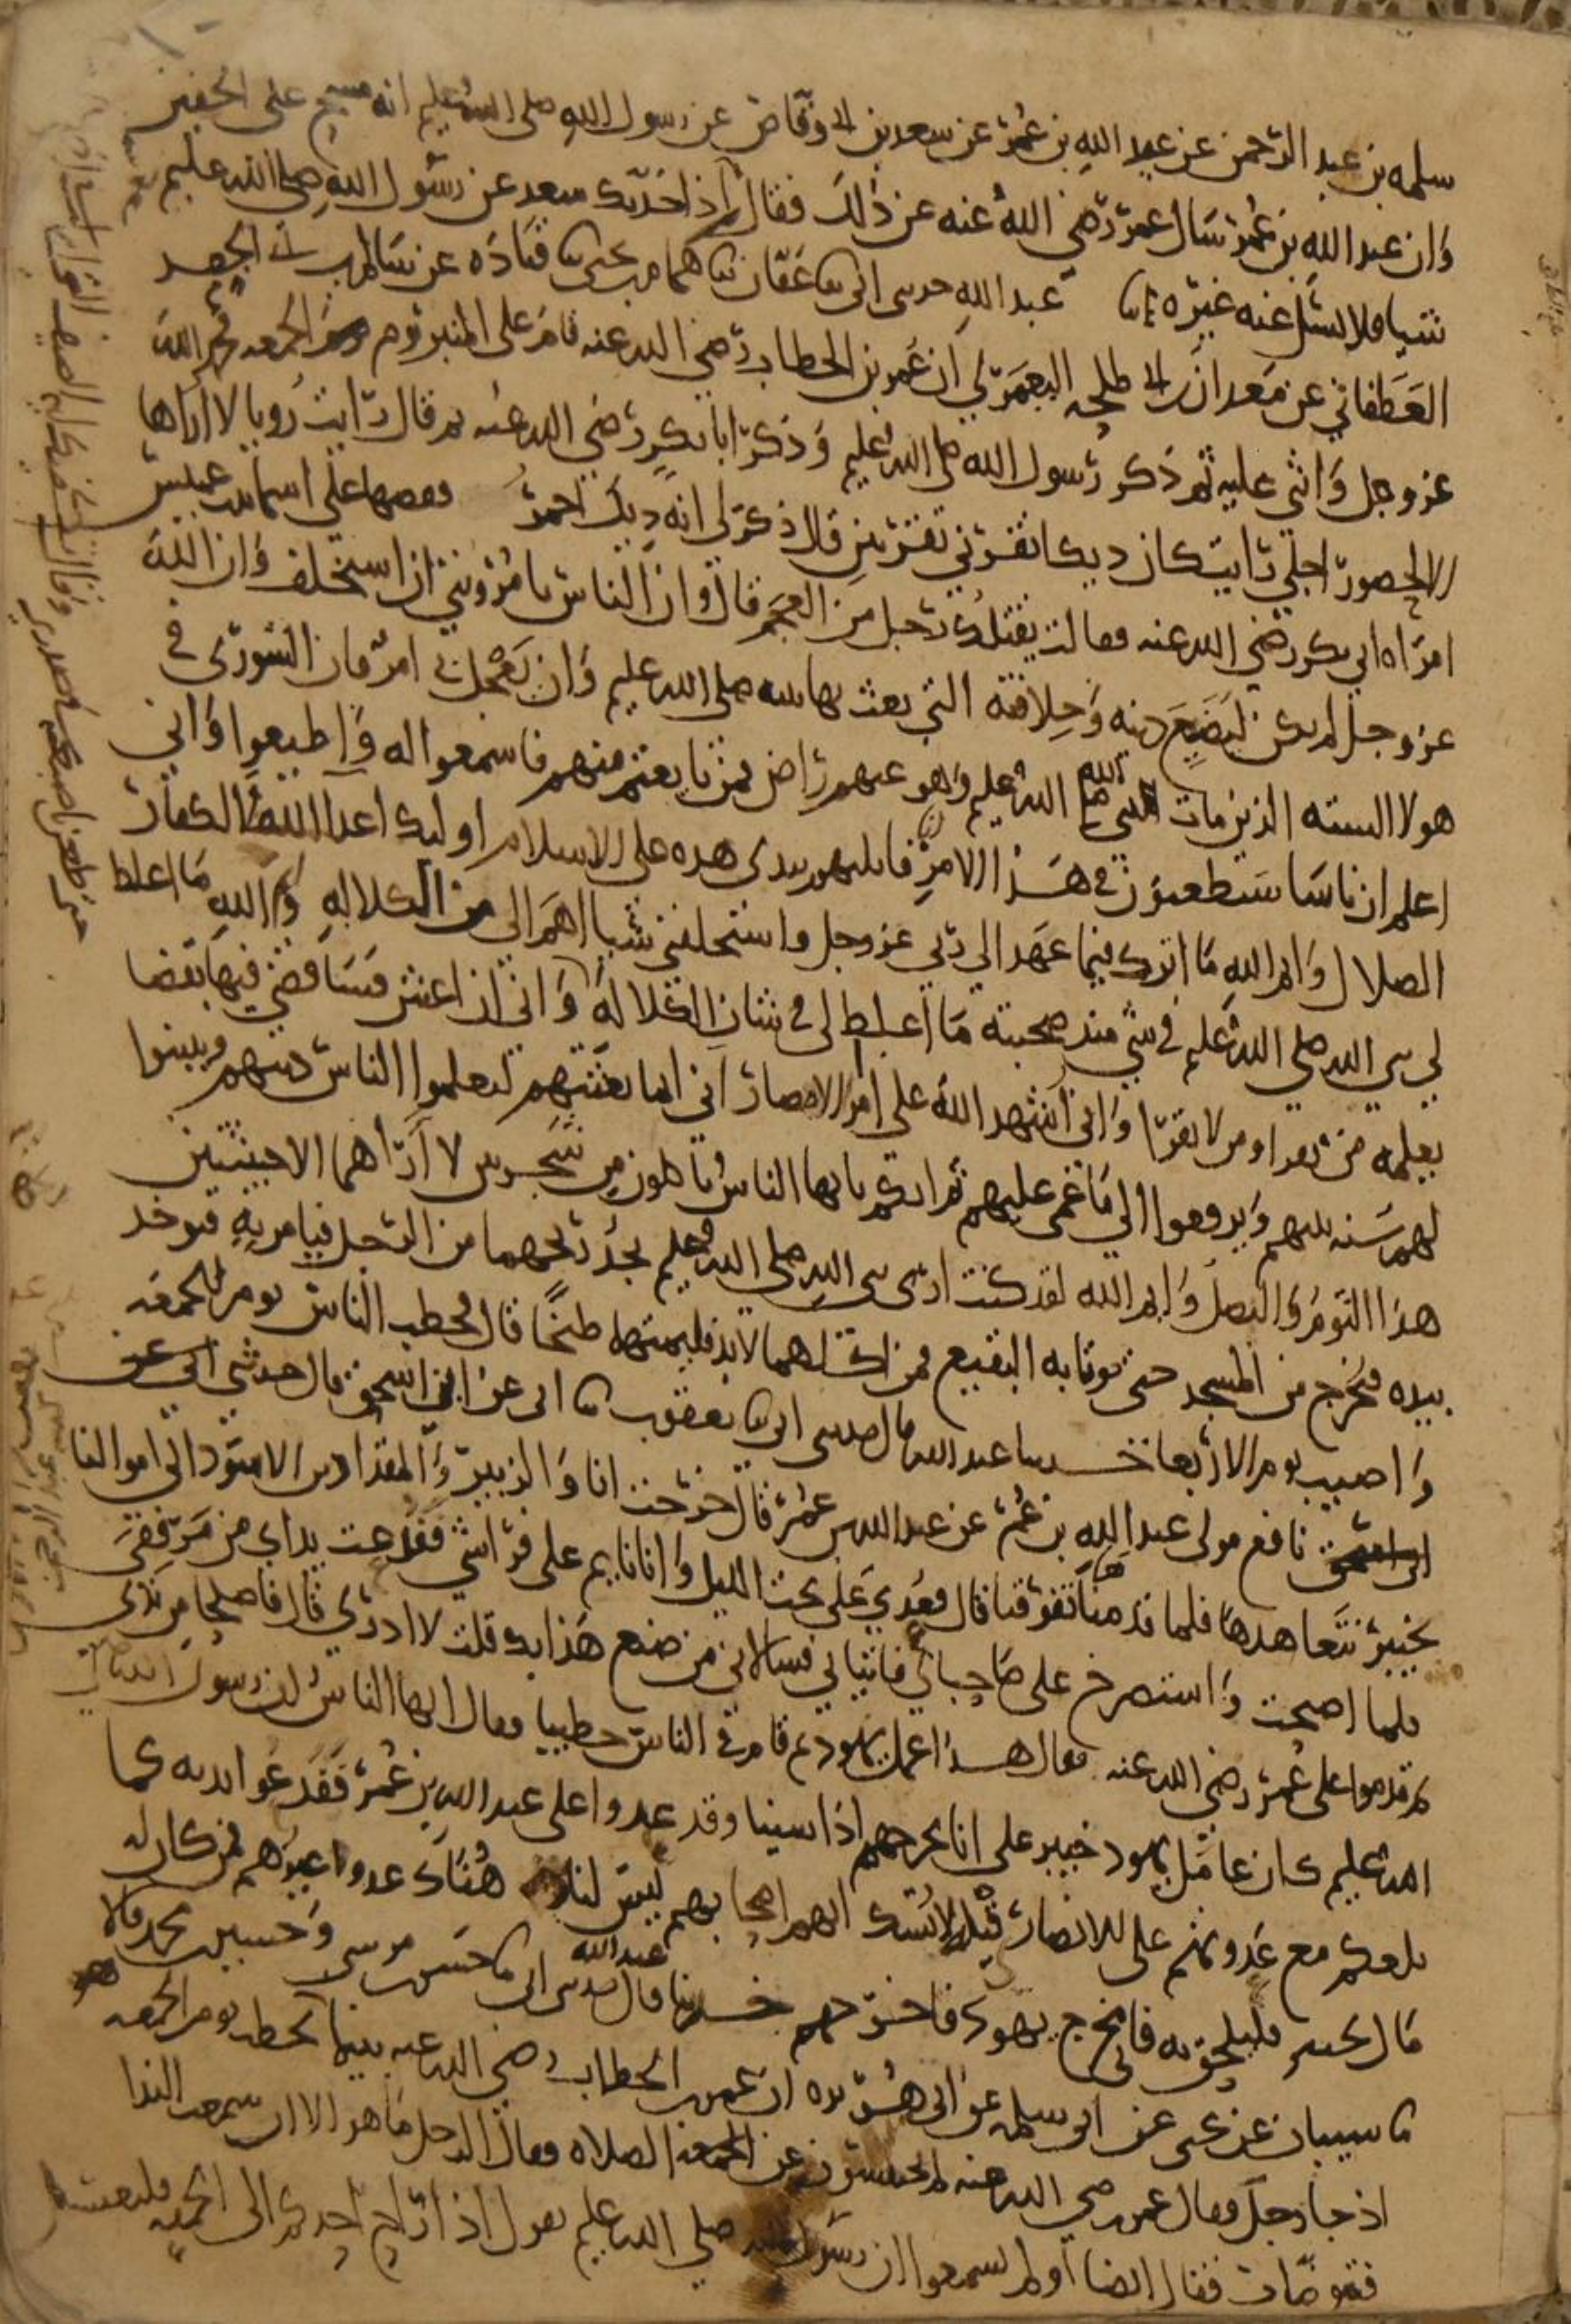 سلمه بن عبد الرحمن عن عبد الله بن عمر عن سعد بن ابي وقاص عن رسول الله صلى الله عليه انه مسح على الخفين
وان عبد الله بن عمر سال عمر رضي الله عنه عن ذلك فقال اذا حدثك سعد عن رسول الله صلى الله عليه
شيا فلا تسل عنه غيره عبد الله حدثني ابي ثنا عفان ثنا همام بن يحيى ثنا قتاده عن سالم بن ابي الجعد
الغطفاني عن معدان بن ابي طلحه اليعمري ان عمر بن الخطاب رضي الله عنه قام على المنبر يوم الجمعه فحمد الله
عز وجل واثنى عليه ثم ذكر رسول الله صلى الله عليه وذكر ابا بكر رضي الله عنه ثم قال رايت رويا لا اراها
الا لحضور اجلي رايت كان ديكا نقرني نقرتين قال ذكر لي انه ديك احمر فقصصها على اسما بنت عميس
امراه ابي بكر رضي الله عنه فقالت يقتلك رجل من العجم قال وان الناس يامرونني ان استخلف وان الله
عز وجل لم يكن ليضيع دينه وخلافته التي بعث بها نبيه صلى الله عليه وان يعجل بي امر فان الشورى في
هولا السته الذين مات نبي الله صلى الله عليه وهو عنهم راض فمن بايعتم منهم فاسمعوا له واطيعوا واني
اعلم ان ناسا سيطعنون في هذا الامر انا قاتلتهم بيدي هذه على الاسلام اوليك اعدا الله الكفار
الضلال وايم الله ما اترك فيما عهد الي ربي عز وجل واستخلفني شيا اهم الي من الكلاله وايم الله ما اغلظ
لي نبي الله صلى الله عليه في شي منذ صحبته ما اغلظ لي في شان الكلاله واني ان اعش فساقضي فيها بقضا
يعلمه من يقرا ومن لا يقرا واني اشهد الله على امرا الامصار اني انما بعثتهم ليعلموا الناس دينهم ويبينوا
لهم سنه نبيهم ويرفعوا الي ما عمي عليهم ثم انكم يا ايها الناس تاكلون من شجرتين لا اراهما الا خبيثتين
هذا الثوم والبصل وايم الله لقد كنت ارى نبي الله صلى الله عليه يجد ريحهما من الرجل فيامر به فيوخذ
بيده فيخرج من المسجد حتى يوتا به البقيع فمن اكلهما لا بد فليمتهما طبخا قال فخطب الناس يوم الجمعه
واصيب يوم الاربعا حدثنا عبد الله قال حدثني ابي ثنا يعقوب ثنا ابي عن ابن اسحق قال حدثني
نافع مولى عبد الله بن عمر عن عبد الله بن عمر قال خرجت انا والزبير والمقداد بن الاسود الى اموالنا
بخيبر نتعاهدها فلما قدمناها تفرقنا قال فعدي علي تحت الليل وانا نايم على فراشي ففدعت يداي من مرفقي
فلما اصبحت واستصرخ علي صاحباي فاتياني فسالاني من صنع هذا بك قلت لا ادري قال فاصلحا من يدي
ثم قدموا على عمر رضي الله عنه فقال هذا عمل يهود ثم قام في الناس خطيبا فقال ايها الناس ان رسول الله صلى
الله عليه كان عامل يهود خيبر على انا نخرجهم اذا شينا وقد عدوا على عبد الله بن عمر ففدعوا يديه كما
بلغكم مع عدوتهم على الانصار قبله لا نشك انهم اصحابهم ليس لنا هناك عدو غيرهم فمن كان له
مال بخيبر فليلحق به فاني مخرج يهود فاخرجهم حدثنا عبد الله قال حدثني ابي ثنا حسن بن موسى وحسين بن محمد قالا
ثنا شيبان عن يحيى عن ابي سلمه عن ابي هريره ان عمر بن الخطاب رضي الله عنه بينما يخطب يوم الجمعه
اذ جا رجل فقال عمر رضي الله عنه لم تحتبسون عن الصلاه فقال الرجل ما هو الا ان سمعت الندا
فتوضات فقال ايضا اولم تسمعوا ان رسول الله صلى الله عليه يقول اذا راح احدكم الى الجمعه فليغتسل